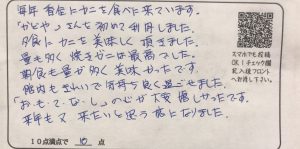 毎年香住にカニを食べに来ています。
「かどや」さんを初めて利用しました。
夕食にカニを美味しく頂きました。
量も多く焼きガニは最高でした。
朝食も量が多く美味かったです。
館内もきれいで気持ち良く過ごせました。
「お・も・て・な・し」の心が大変嬉しかったです。
来年も又来たいと思う宿になりました。
10点満点で 10 点
スマホでも投稿
OK!チェック欄
記入後フロント
へお渡し下さい。